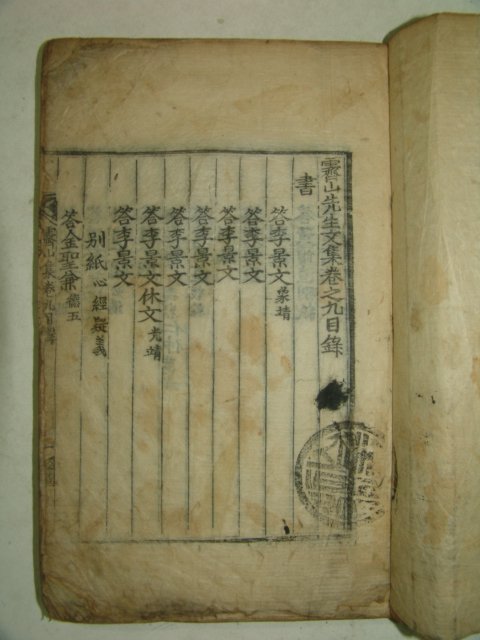 霽山先生文集卷之九目錄
書
答李景文象靖
答李景文
答李景文
答李景文
答李景文
答李景文休文光靖
答李景文
別紙心經疑義
答金聖兼德五
霽山集卷九目錄